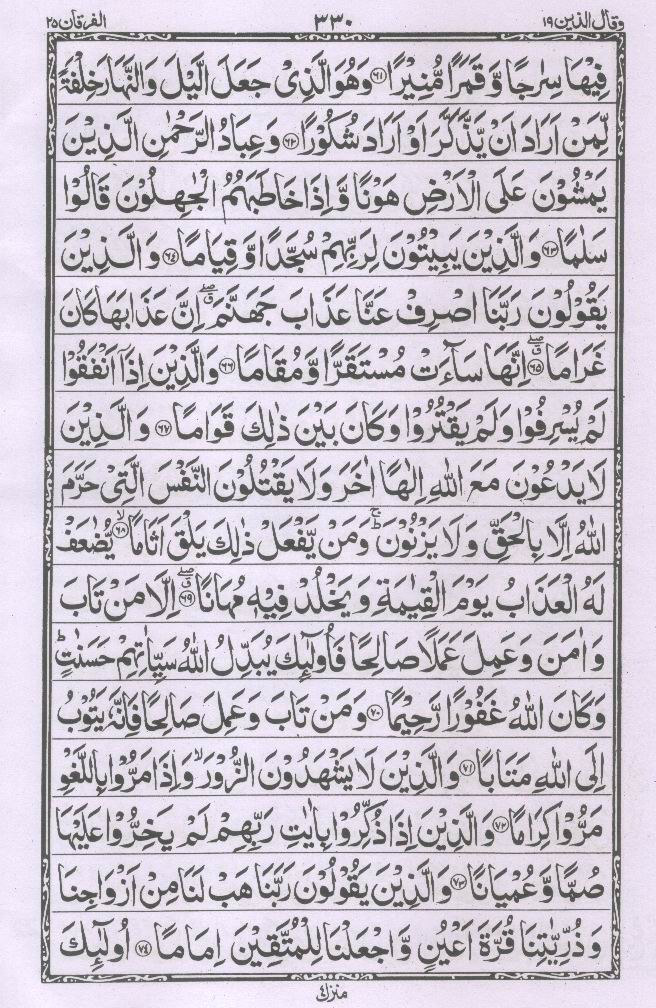 وقال الذين ١٩ ٣٣٠ الفرقان ٢٥
فِيْهَا سِرٰجًا وَّ قَمَرًا مُّنِيْرًا ﴿٦١﴾ وَهُوَ الَّذِىْ جَعَلَ الَّيْلَ وَالنَّهَارَ خِلْفَةً
لِّمَنْ اَرَادَ اَنْ يَّذَّكَّرَ اَوْ اَرَادَ شُكُوْرًا ﴿٦٢﴾ وَعِبَادُ الرَّحْمٰنِ الَّذِيْنَ
يَمْشُوْنَ عَلَى الْاَرْضِ هَوْنًا وَّ اِذَا خَاطَبَهُمُ الْجٰهِلُوْنَ قَالُوْا
سَلٰمًا ﴿٦٣﴾ وَالَّذِيْنَ يَبِيْتُوْنَ لِرَبِّهِمْ سُجَّدًا وَّ قِيَامًا ﴿٦٤﴾ وَ الَّذِيْنَ
يَقُوْلُوْنَ رَبَّنَا اصْرِفْ عَنَّا عَذَابَ جَهَنَّمَ ۖق اِنَّ عَذَابَهَا كَانَ
غَرَامًا ﴿٦٥﴾ۖق اِنَّهَا سَآءَتْ مُسْتَقَرًّا وَّ مُقَامًا ﴿٦٦﴾ وَالَّذِيْنَ اِذَاۤ اَنْفَقُوْا
لَمْ يُسْرِفُوْا وَلَمْ يَقْتُرُوْا وَكَانَ بَيْنَ ذٰلِكَ قَوَامًا ﴿٦٧﴾ وَ الَّذِيْنَ
لَا يَدْعُوْنَ مَعَ اللّٰهِ اِلٰهًا اٰخَرَ وَلَا يَقْتُلُوْنَ النَّفْسَ الَّتِىْ حَرَّمَ
اللّٰهُ اِلَّا بِالْحَقِّ وَ لَا يَزْنُوْنَ ۚ وَمَنْ يَّفْعَلْ ذٰلِكَ يَلْقَ اَثَامًا ﴿٦٨﴾ۙ يُّضٰعَفْ
لَهُ الْعَذَابُ يَوْمَ الْقِيٰمَةِ وَيَخْلُدْ فِيْهٖ مُهَانًا ﴿٦٩﴾ۖق اِلَّا مَنْ تَابَ
وَ اٰمَنَ وَ عَمِلَ عَمَلًا صَالِحًا فَاُولٰٓئِكَ يُبَدِّلُ اللّٰهُ سَيِّاٰتِهِمْ حَسَنٰتٍ ؕ
وَكَانَ اللّٰهُ غَفُوْرًا رَّحِيْمًا ﴿٧٠﴾ وَمَنْ تَابَ وَ عَمِلَ صَالِحًا فَاِنَّهٗ يَتُوْبُ
اِلَى اللّٰهِ مَتَابًا ﴿٧١﴾ وَالَّذِيْنَ لَا يَشْهَدُوْنَ الزُّوْرَ ۙ وَاِذَا مَرُّوْا بِاللَّغْوِ
مَرُّوْا كِرَامًا ﴿٧٢﴾ وَالَّذِيْنَ اِذَا ذُكِّرُوْا بِاٰيٰتِ رَبِّهِمْ لَمْ يَخِرُّوْا عَلَيْهَا
صُمًّا وَّ عُمْيَانًا ﴿٧٣﴾ وَالَّذِيْنَ يَقُوْلُوْنَ رَبَّنَا هَبْ لَنَا مِنْ اَزْوَاجِنَا
وَ ذُرِّيّٰتِنَا قُرَّةَ اَعْيُنٍ وَّ اجْعَلْنَا لِلْمُتَّقِيْنَ اِمَامًا ﴿٧٤﴾ اُولٰٓئِكَ
منزل ٤